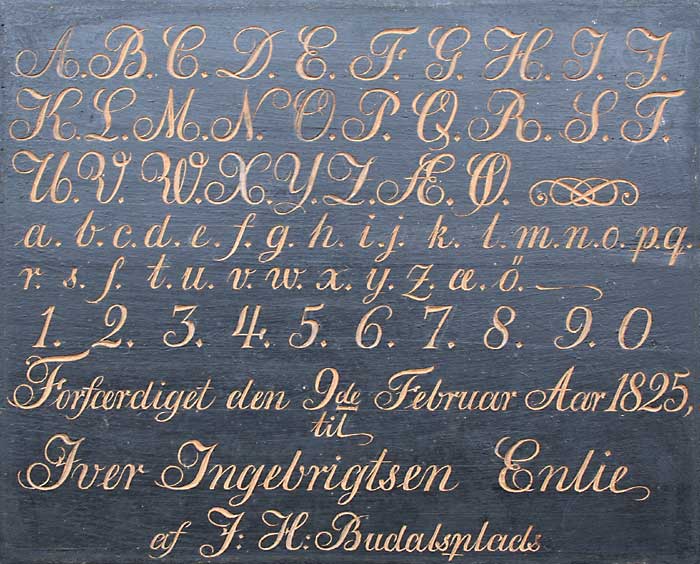 A. B. C. D. E. F. G. H. I. J.
K. L. M. N. O. P. Q. R. S. T.
U. V. W. X. Y. Z. Æ. Ø.
a. b. c. d. e. f. g. h. i. j. k. l. m. n. o. p. q.
r. s. ſ. t. u. v. w. x. y. z. æ. ö.
1. 2. 3. 4. 5. 6. 7. 8. 9. 0.
Forfærdiget den 9de Februar Aar 1825,
til
Iver Ingebrigtsen Enlie
af J: H: Budalsplads